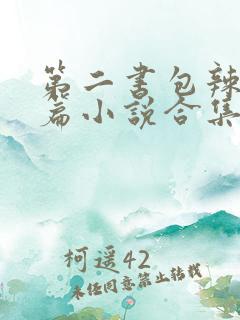 第二书包辣
篇小说合集
柯遥42
未经同意禁止转载